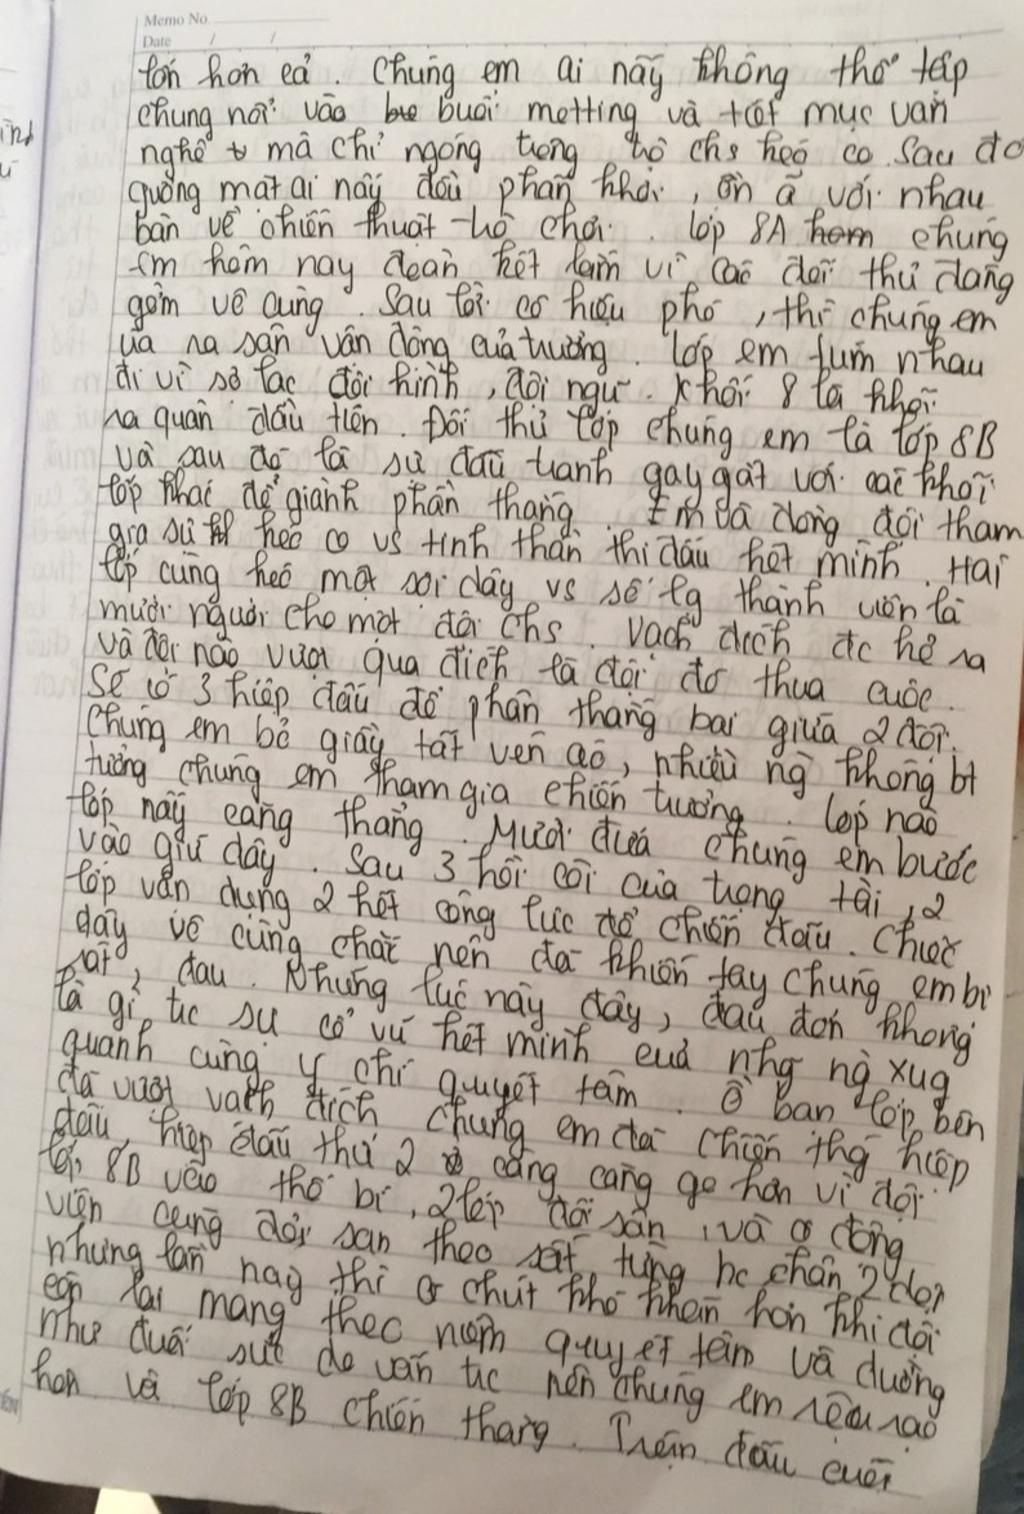 Memo No.
Date / /
lớn hơn cả. Chúng em ai nấy không thể tập
chung nổi vào buổi metting và tiết mục văn
nghệ mà chỉ ngóng trông trò chs kéo co. Sau đó
guồng mặt ai nấy đều phấn khởi, ồn ã với nhau
bàn về chiến thuật trò chơi. lớp 8A chúng
em hôm nay đoàn kết lắm vì các đối thủ đáng
gờm vô cùng. Sau lời cô hiệu phó, thì chúng em
ùa ra sân vận động của trường. lớp em túm nhau
đi vì sợ lạc đội hình, đội ngũ. Khối 8 là khối
ra quân đầu tiên. Đối thủ lớp chúng em là lớp 8B
và sau đó là sự đấu tranh gay gắt với các khối
lớp khác để giành phần thắng. Em và đồng đội tham
gia sự kéo co vs tinh thần thi đấu hết mình. Hai
lớp cùng kéo một sợi dây vs số lg thành viên là
mười người cho một đội chs. Vạch đích đc kẻ ra
và đội nào vượt qua đích là đội đó thua cuộc.
Sẽ có 3 hiệp đấu để phân thắng bại giữa 2 đội.
Chúng em bỏ giầy tất vén áo, nhiều ng không bt
tưởng chúng em tham gia chiến trường. lớp nào
lớp nấy căng thẳng. Mười đứa chúng em bước
vào giữ dây. Sau 3 hồi còi của trọng tài, 2
lớp vận dụng 2 hết công lực để chiến đấu. Chiếc
dây vô cùng chắc nên đã khiến tay chúng em bị
rát, đau. Nhưng lúc này đây, đau đớn không
là gì, sự cổ vũ hết mình của nhg ng xug
quanh cùng ý chí quyết tâm. Ồ bạn lớp bên
đã vượt vạch đích chúng em đã chiến thắg hiệp
đầu, hiệp đấu thứ 2 càng căng go hơn vì đội
lớp 8B vào thế bí, 2 lớp đổi sân, và cổ động
viên cũng đổi sân theo sát từng bc chân 2 đội
nhưng lần này thì có chút khó khăn hơn khi đội
còn lại mang theo niềm quyết tâm và dường
như đuối sức do vấn tic nên chúng em rệu rạo
hơn và lớp 8B chiến thắng. Trận đấu cuối